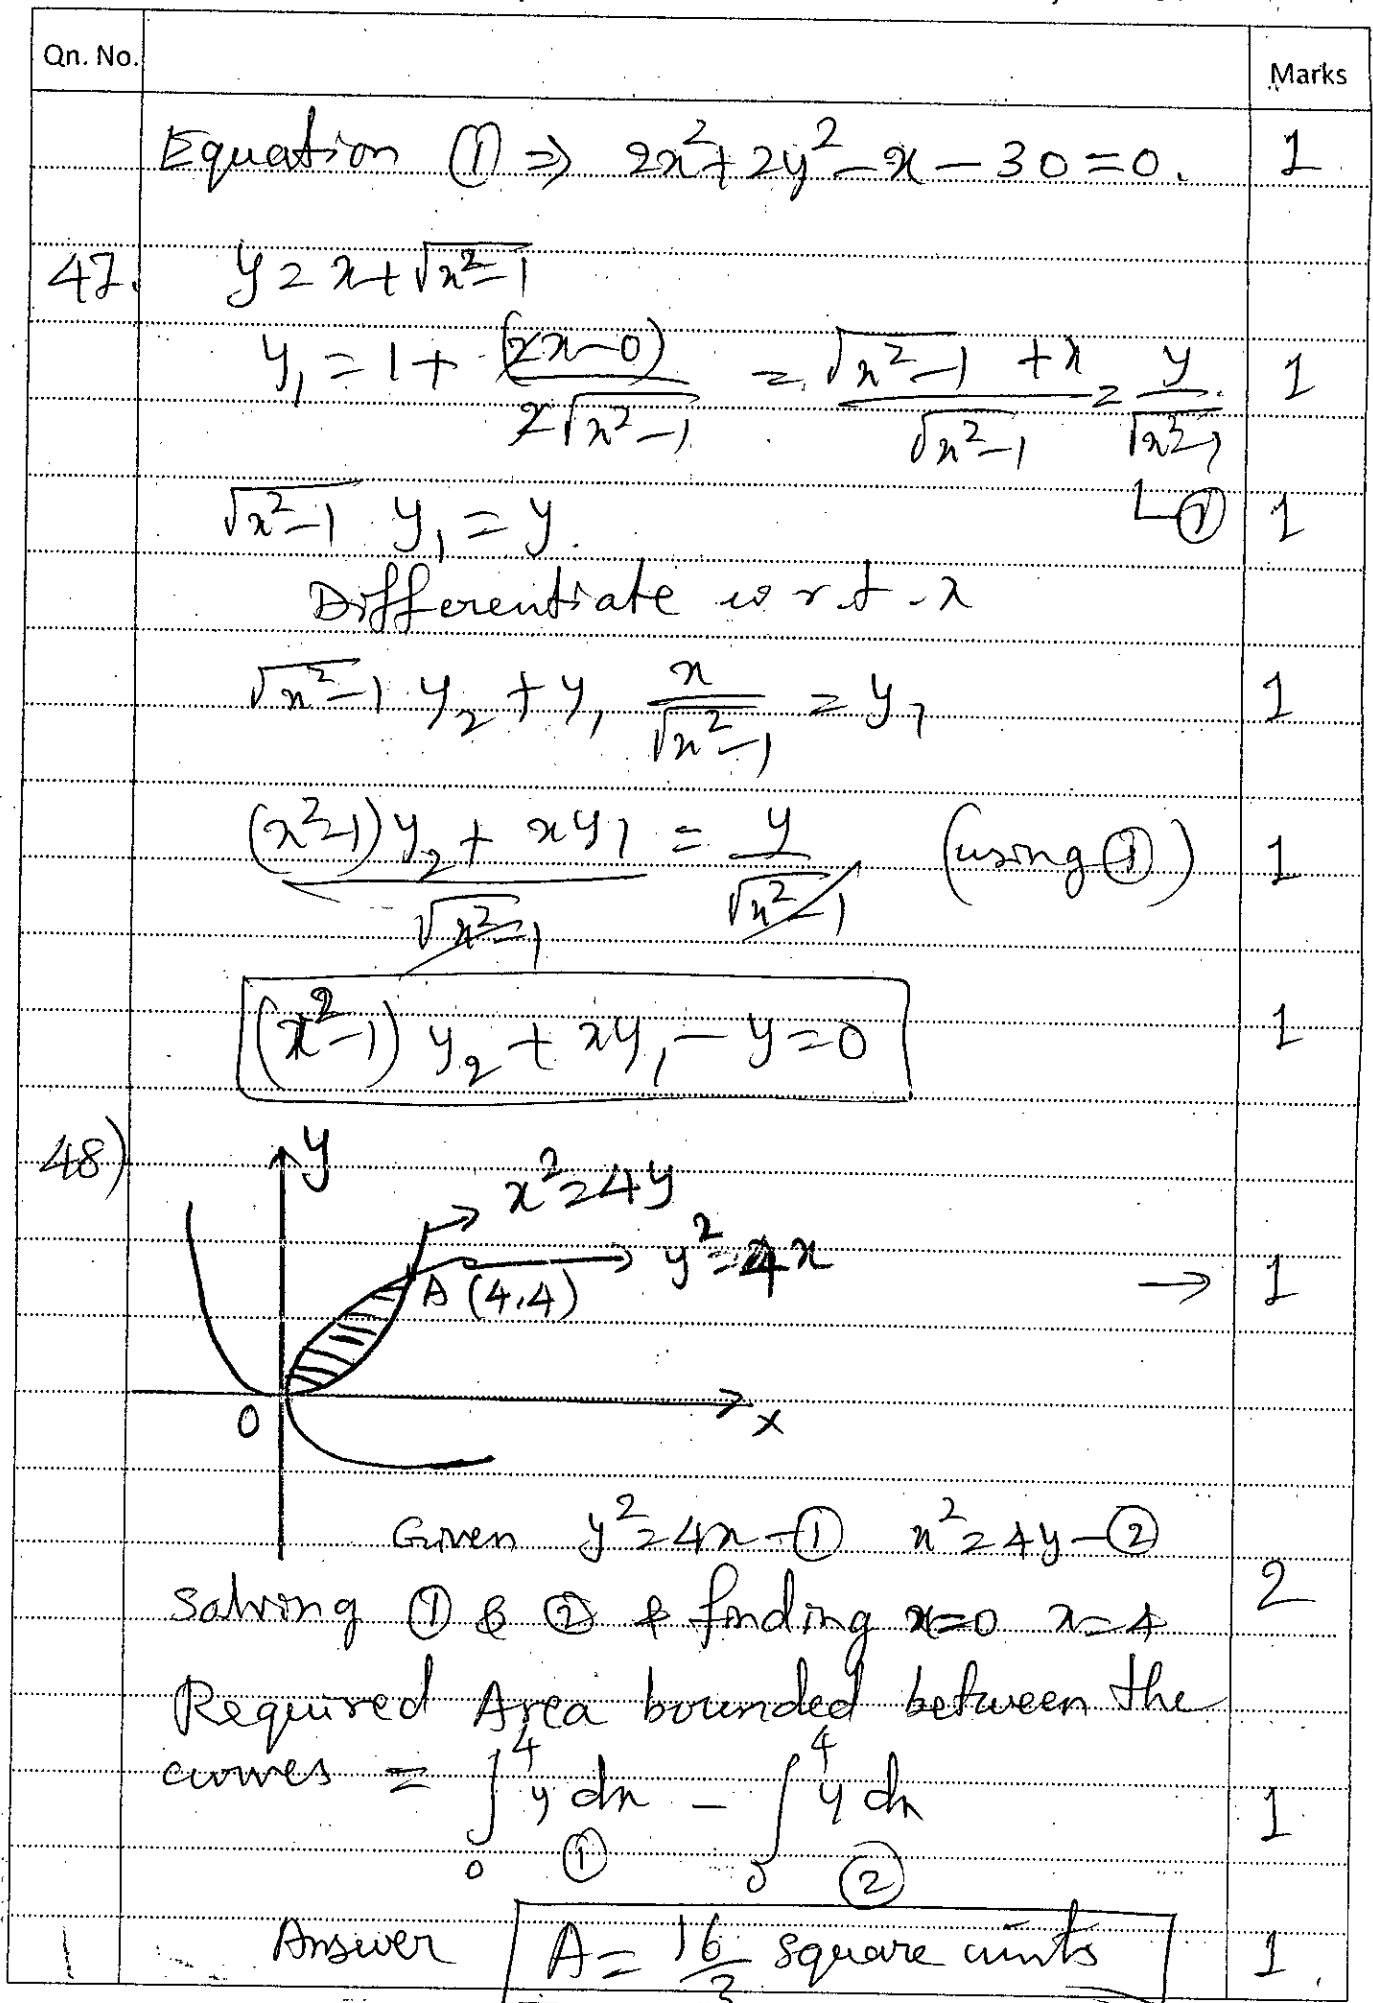 Qn. No. Marks
Equation ① ⇒ 2x²+2y²-x-30=0. 1
47. y=x+√(x²-1)
y₁ = 1 + (2x-0)/(2√(x²-1)) = (√(x²-1) + x)/√(x²-1) = y/√(x²-1) 1
√(x²-1) y₁ = y. ① 1
Differentiate w.r.t. x
√(x²-1) y₂ + y₁ x/√(x²-1) = y₁ 1
((x²-1)y₂ + xy₁)/√(x²-1) = y/√(x²-1) (using ①) 1
(x²-1) y₂ + xy₁ - y=0 1
48) y
x²=4y
y²=4x
A (4,4) → 1
O x
Given y²=4x-① x²=4y-②
Solving ① & ② & finding x=0 x=4 2
Required Area bounded between the
curves = ∫₀⁴ y dx - ∫₀⁴ y dx 1
① ②
Answer A = 16/3 square units 1